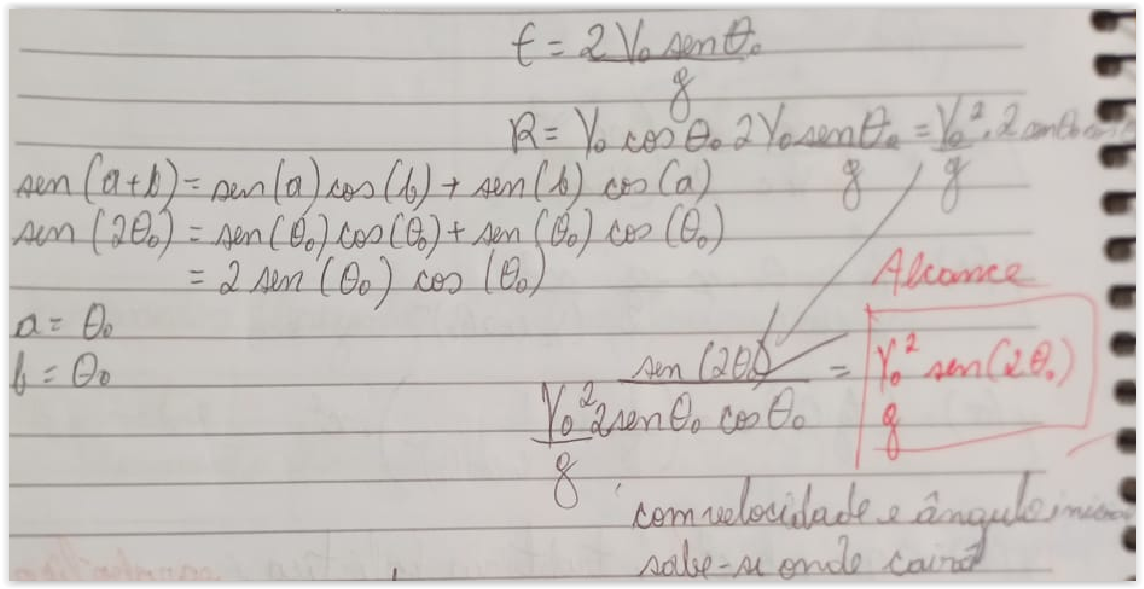 t = 2 V₀ sen θ₀ / g
R = V₀ cos θ₀ 2 V₀ sen θ₀ / g = V₀² . 2 sen θ₀ / g
sen (a+b) = sen (a) cos (b) + sen (b) cos (a)
sen (2θ₀) = sen (θ₀) cos (θ₀) + sen (θ₀) cos (θ₀)
= 2 sen (θ₀) cos (θ₀)
a = θ₀
b = θ₀
Alcance
sen (2θ₀)
V₀² 2 sen θ₀ cos θ₀ / g = V₀² sen (2θ₀) / g
com velocidade e ângulo
sabe-se onde cairá